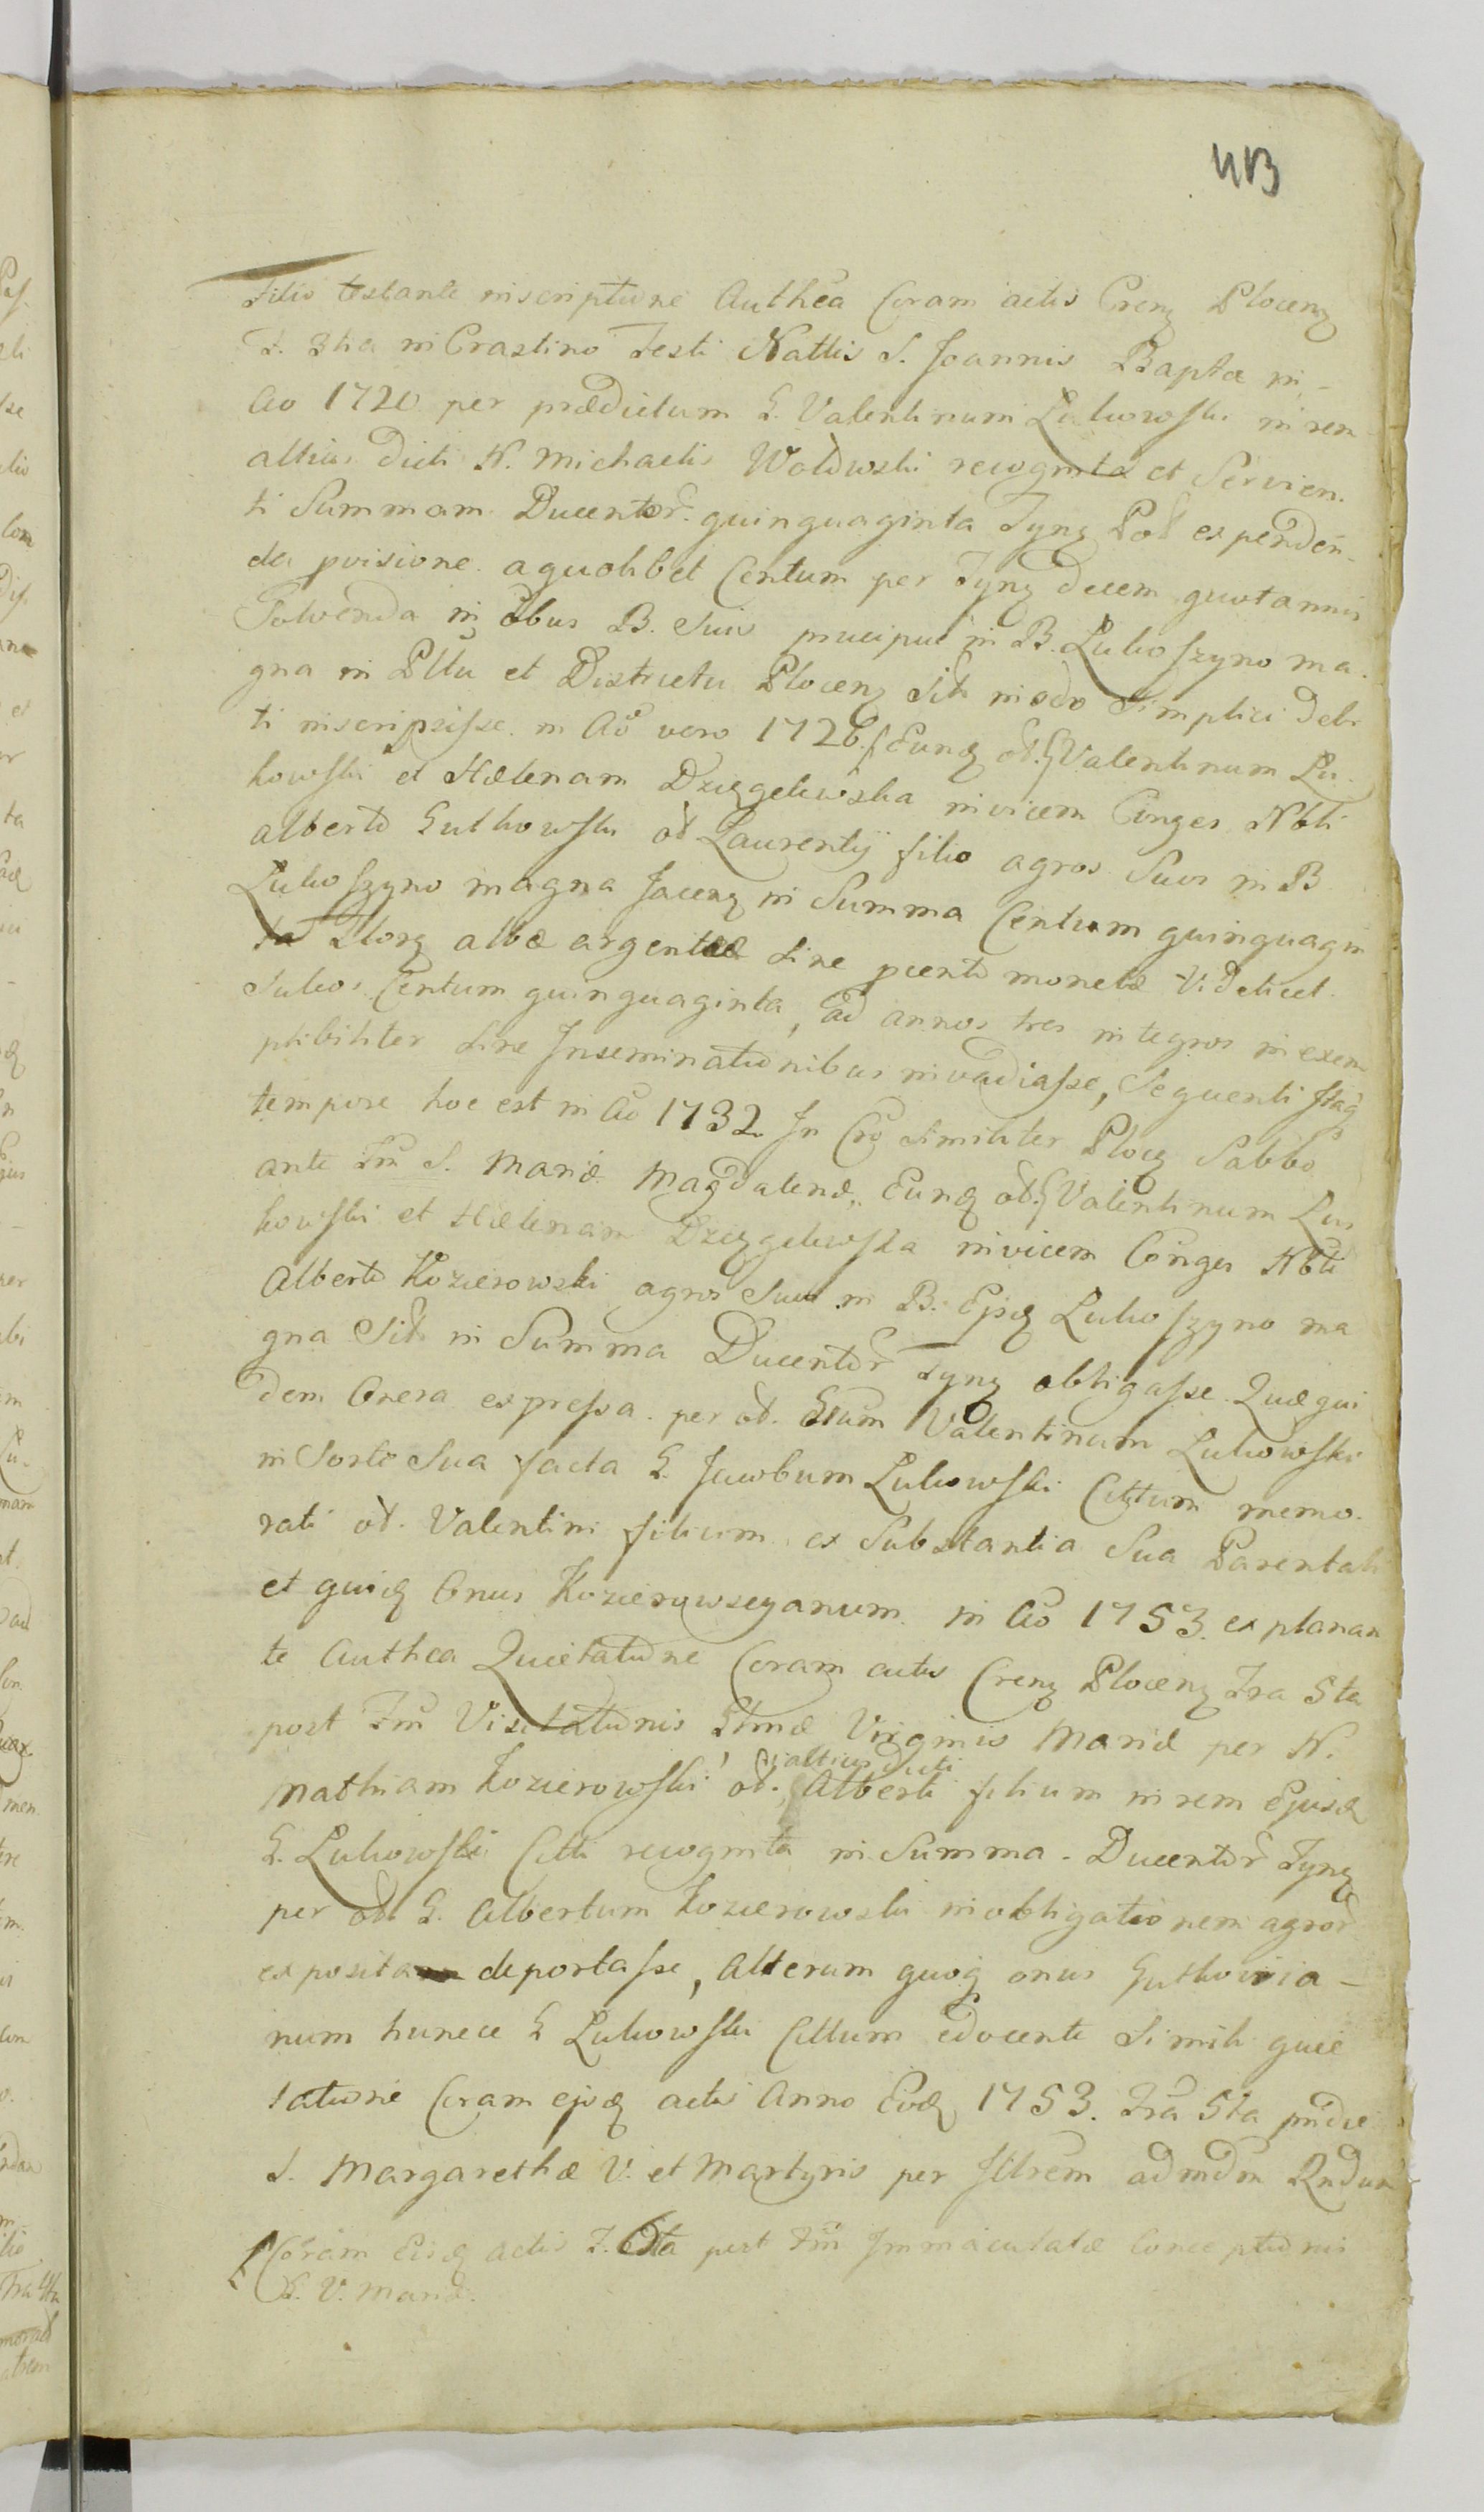 413
Filio testante inscriptione Authca Coram actis Crenz Plocenz
F. 3tia in Crastino Festi Nattis S. Joannis Baptæ in
Ao 1720 per prædictum G. Valentinum Lukowski in rem
altius dicti N. Michaelis Woldwski recognita et Servien.
ti Summam Ducentor. quinquaginta Fynz Pol expenden-
da pvisione a quolibet Centum per Fynz decem quotannis
Solvenda in obus B. Suis precipue in B. Lukoszyno ma.
gna in Pllu et Districtu Plocenz Sit. modo Simplici debi
ti inscripsisse. in Ao vero 1726. Eunq od. G Valentinum Lu.
kowski et Hælenam Dzięgelewska invicem Cinges Nbli
Alberto Gutkowski od Laurentij filio agros Suos in B
Lukoszyno magna Jacenz in Summa Centum quinquagin
ta Florz albæ argenteæ sine pcento monetæ Videlicet
Sukos Centum quinquaginta, ad annos tres integros in exem
ptibiliter sine Inseminationibus invadiasse, Sequenti Itaq
tempore hoc est in Ao 1732 In Cro Similiter Plocz Sabbo
ante Fm S. Mariæ Magdalenæ, Eunq od. G Valentinum Lu
kowski et Hælenam Dzięgelewska invicem Cönges Nbli
Alberto Kozierowski agros Suos in B. Ejsq Lukoszyno ma
gna Sit. in Summa Ducentor Fynz obligasse. Quæ qui
dem Onera expressa per od. Gsum Valentinum Lukowski
in Sorte Sua facta G. Jacobum Lukowski Cittum memo.
rati od. Valentini filium ex Substantia Sua Parentali
et quiq Onus Kozierowscyanum in Ao 1753. explanan
te Authca Quietatione Coram actis Crenz Plocenz Fra 5ta
post Fm Visitationis Stmæ Virginis Mariæ per N.
altius dicti
Mathiam Kozierowski od. Alberti filium in rem Ejusq
G. Lukowski Citti recognita in Summa Ducentor Fynz
per od G. Albertum Kozierowski in obligationem agror
exposita deportasse, Alterum quoq onus Gutkovia-
num huncce G Lukowski Cittum edocente Simili quie
tatione Coram ejsq actis Anno Eodq 1753. Fra 5ta pridie
S. Margarethæ V. et Martyris per Illrem admdm Rndum
Coram Eisq actis F. 6ta post Fm Immaculatæ Conceptionis
B. V. Mariæ.